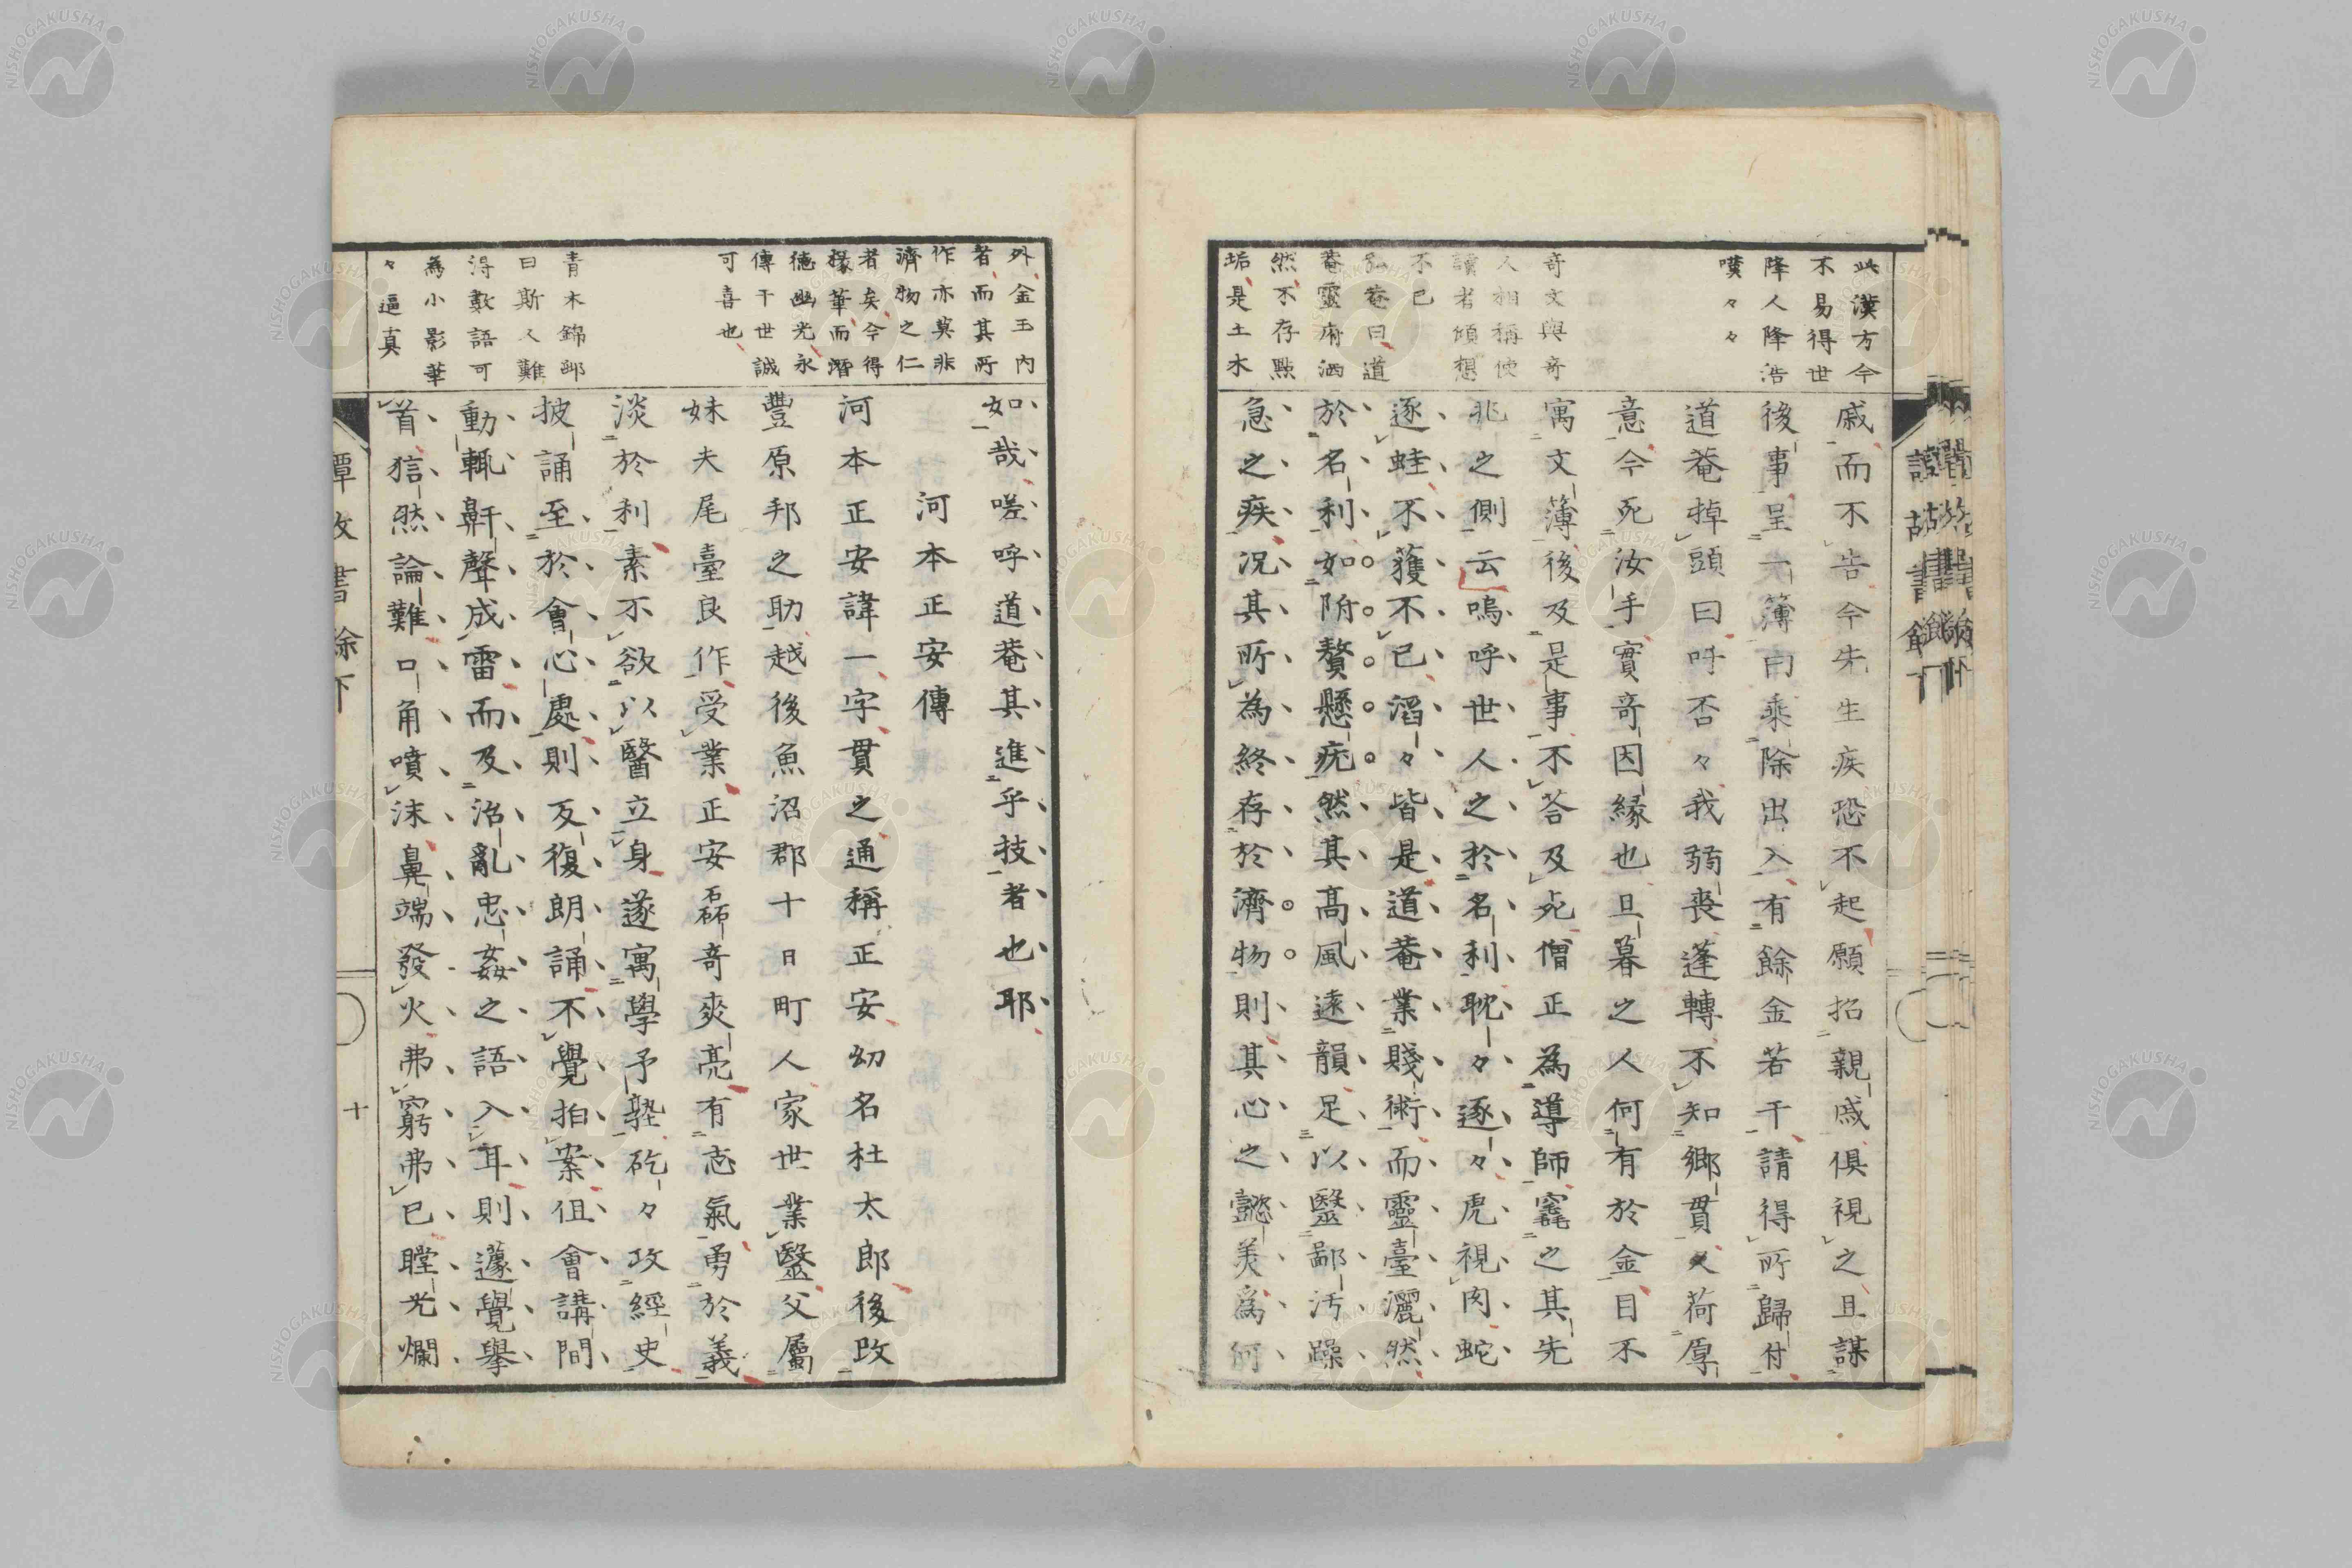 此漢方今
不易得世
降人降浩
嘆々々
奇文與奇
人相稱使
讀者傾想
不已
弘菴曰道
菴靈府洒
然不存點
垢是土木
戚而不告今先生疾恐不起願招親戚俱視之且謀
後事呈一簿曰乘除出入有餘金若干請得所歸付
道菴掉頭曰吁否々我弱喪蓬轉不知鄉貫又荷厚
意今死汝手實奇因緣也旦暮之人何有於金目不
寓文簿後及是事不荅及死僧正為導師窆之其先
兆之側云嗚呼世人之於名利耽々逐々虎視肉蛇
逐蛙不獲不已滔々皆是道菴業賤術而靈臺灑然
於名利如附贅懸疣然其高風遠韻足以醫鄙汚躁
急之疾況其所為終存於濟物則其心之懿美為何
外金玉內
者而其所
作亦莫非
濟物之仁
者矣今得
椽筆而潛
德幽光永
傳于世誠
可喜也
青木錦邨
曰斯人難
得數語可
為小影華
々逼真
如哉嗟呼道菴其進乎技者也耶
河本正安傳
河本正安諱一字貫之通稱正安幼名杜太郎後改
豐原邦之助越後魚沼郡十日町人家世業醫父屬
妹夫尾臺良作受業正安磊奇爽亮有志氣勇於義
淡於利素不欲以醫立身遂寓學予塾矻々攻經史
披誦至於會心處則反復朗誦不覺拍案但會講間
動輒鼾聲成雷而及治亂忠姦之語入耳則遽覺擧
首狺然論難口角噴沫鼻端發火弗窮弗已瞠光爛
譚故書餘下
十